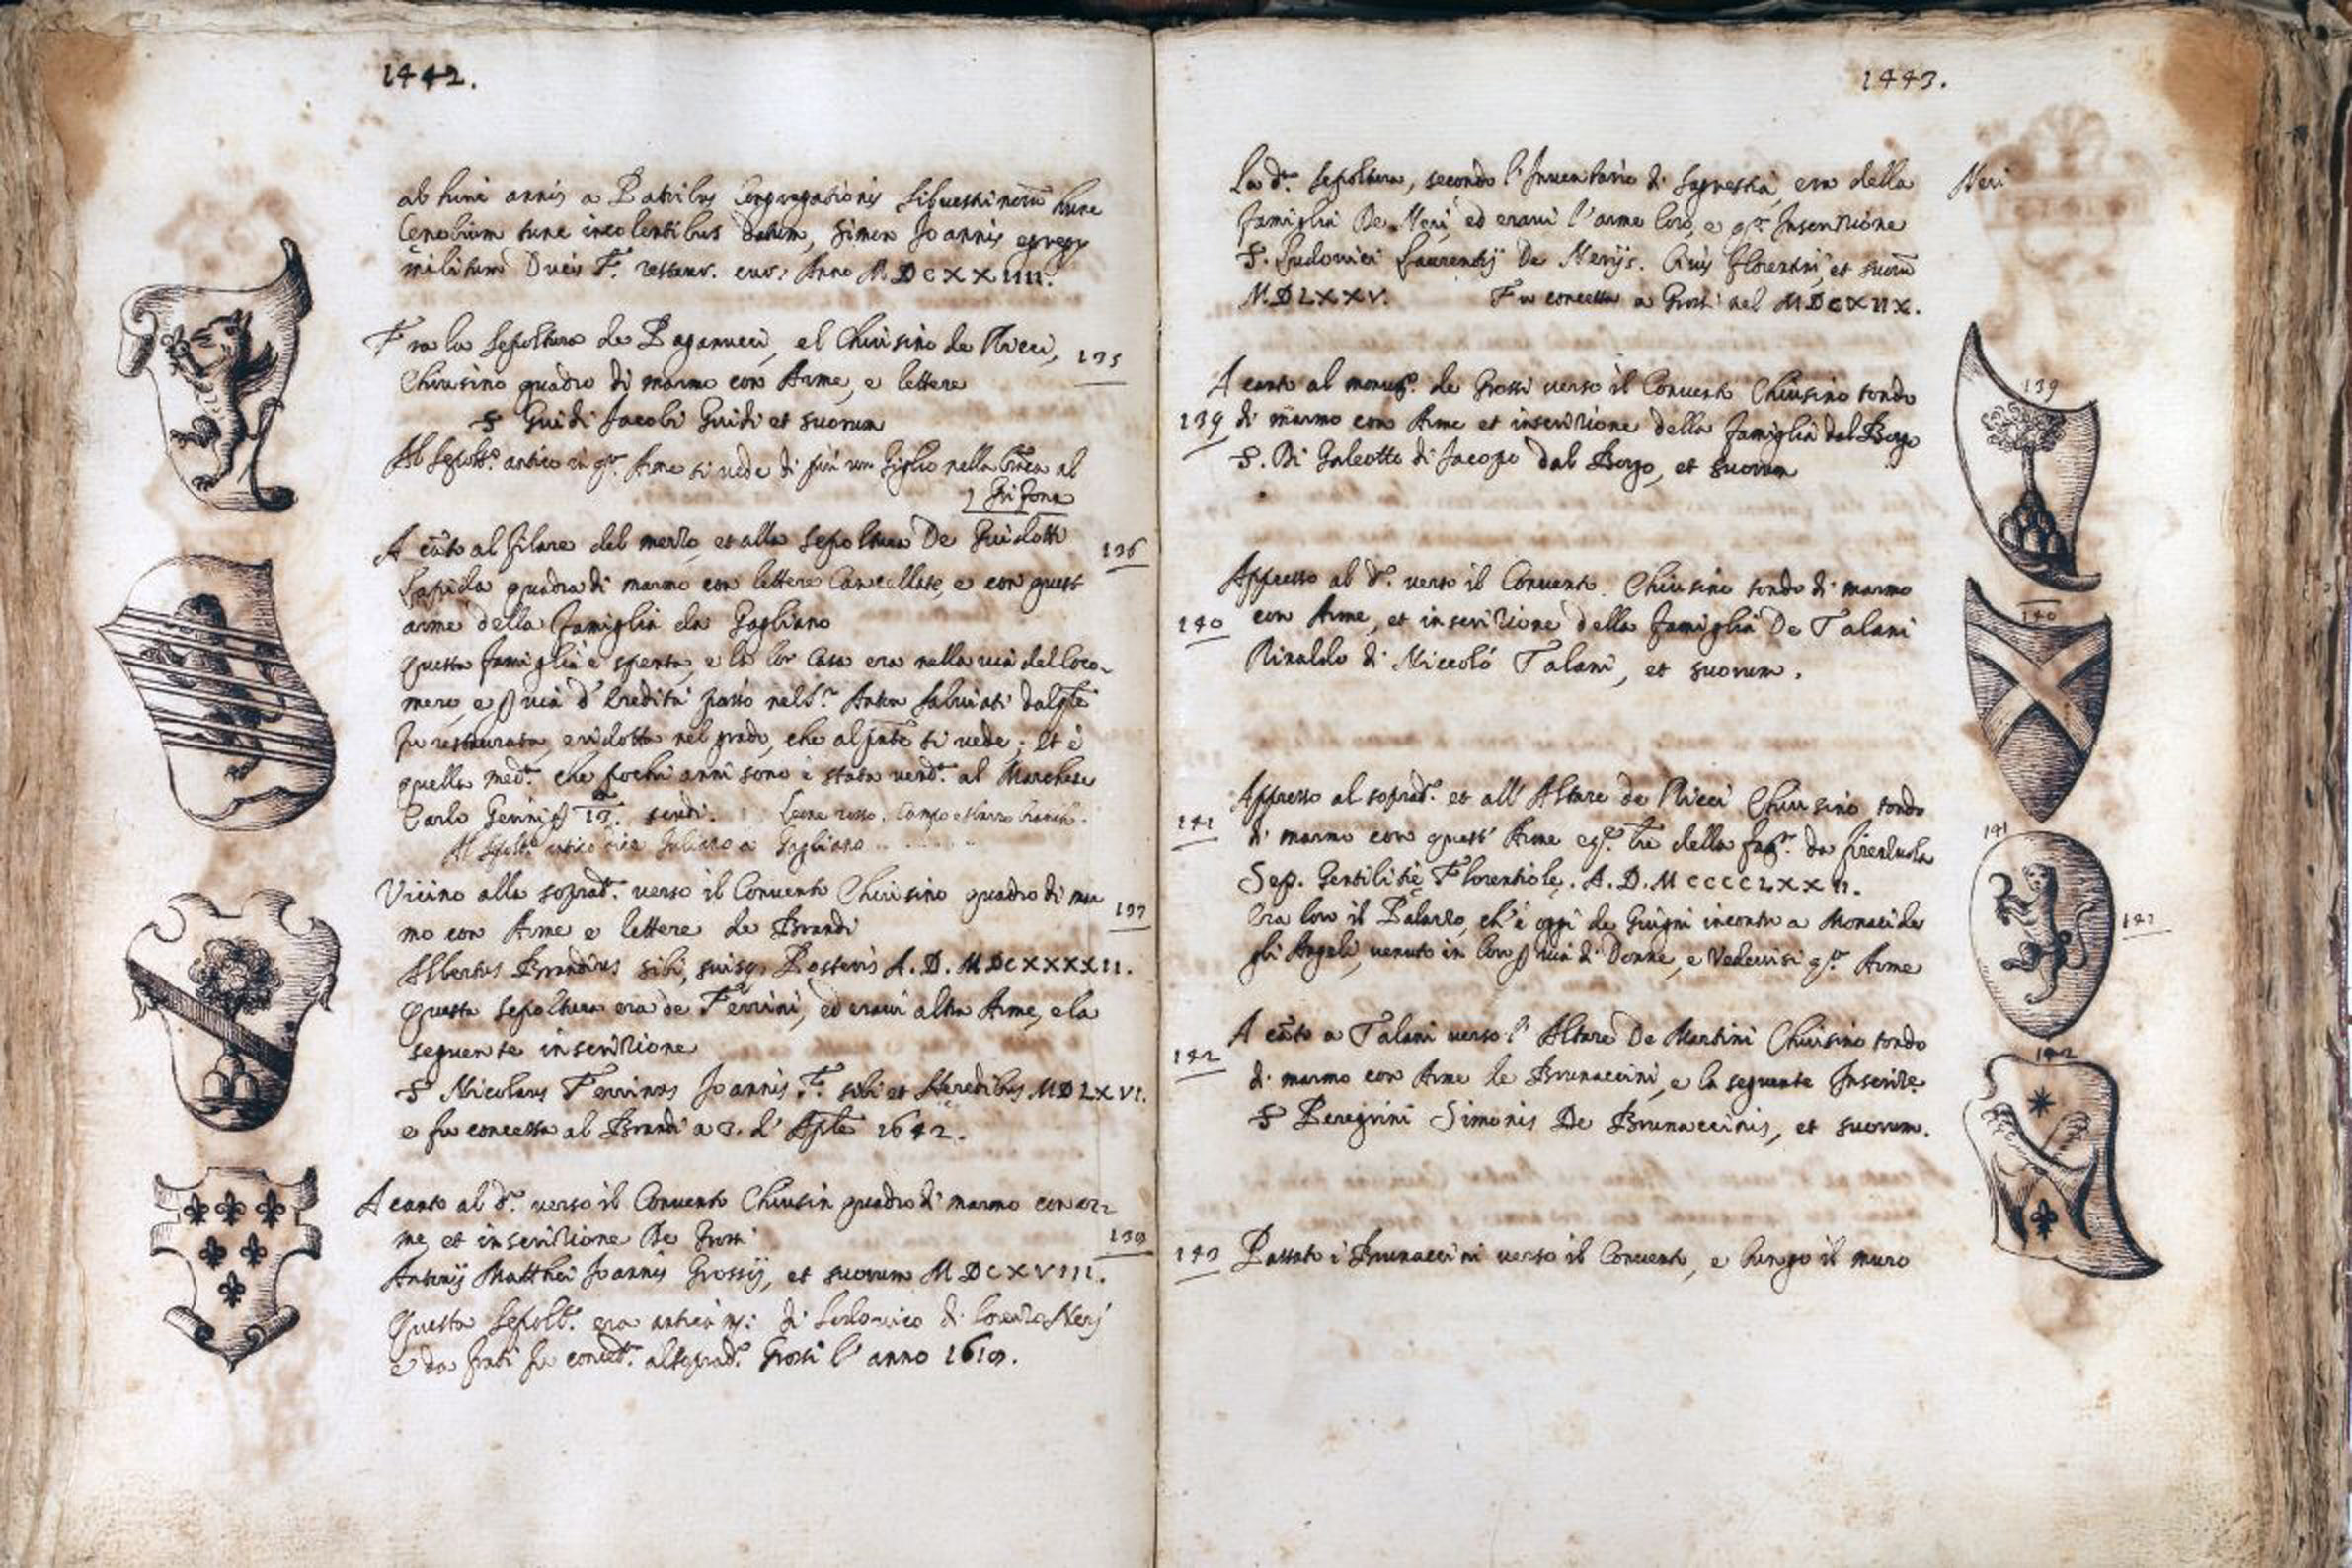 1442.
ab hinc annis a Patribus Congregationis Silvestrinorũ hunc
Cenobium tunc incolentibus datum, Simon Joannis egregy
militum Ducis F. restaur. cur. Anno M.DCXXIIII.
Fra la Sepoltura de Paganucci, el Chiusino de Ricci, 135
Chiusino quadro di marmo con Arme, e lettere
S Guidi Jacobi Guidi et suorum
Al Sepolt.º antico in q.ª Arme si vede di più un Giglio nella branca al
Grifone
A cãto al pilare del mezzo, et alla Sepoltura De Guidotti 136
Lapida quadra di marmo con lettere Cancellate, e con quest
arme della famiglia da Gagliano
Questa famiglia è spenta, e la lor Casa era nella via del Coco-
mero, e p via d'Eredità passò nel S.r Anton Salviati dal qle
fu restaurata, e ridotta nel grado, che al pñte si vede; et è
quella med.ª che pochi anni sono è stata vend.ª al Marchese
Carlo Gerini p scudi. Leone rosso, Campo e sbarre bianch.
Al Sepolt.º antico Giuliano a Gagliano
Vicino alla soprad.ª verso il Convento Chiusino quadro di mar 137
mo con Arme e lettere de Brandi
Albertus Brandius sibi, suisq. Posteris A.D.MDCXXXXII.
Questa sepoltura era de Ferrini, ed eravi altra Arme, e la
seguente inscrizione
S Nicolaus Ferrinos Joannis F. sibi et Heredibus MDLXVI.
e fu concessa al Brandi a 3. d' Aple 1642.
A canto al d.º verso il Convento Chiusin quadro di marmo con ar-
me, et inscrizione De Grossi 138
Antonij Matthei Joannis Grossij, et suorum MDCXVIII.
Questa Sepolt.ª era antica m: di Lodovico di Lorenzo Nerj
e da frati fu conced.ª al soprad.º Grossi l'anno 1618.
1443.
La d.ª sepoltura, secondo l'Inventario di Sagrestia, era della Neri
famiglia De Neri, ed eravi l'arme loro, e q.ª Inscrizione
S. Ludovici Laurentij De Nerijs. Civis florentini, et suorũ
MDLXXV. Fu concessa a Grossi nel MDCXIIX.
A canto al monum.º de Grossi verso il Convento Chiusino tondo
139 di marmo con Arme et inscrizione della famiglia dal Borgo
S. Di Galeotto di Jacopo dal Borgo, et suorum
139
Appresso al d.º verso il Convento. Chiusino tondo di marmo
140 con Arme, et inscrizione della famiglia De Talani
Rinaldo di Niccolò Talani, et suorum.
140
Appresso al soprad.º et all'Altare de Ricci Chiusino tondo
141 di marmo con quest'Arme della fam.ª da firenzuola
Sep. Gentilitie Florentiole. A.D.MCCCCLXXII.
Era loro il Palazzo, ch'è oggi de Guigni incontro a Monaci de
gli Angeli, venuto in loro p via di Donne, e Vedevisi q.ª Arme
141
141
A cãto a Talani verso l'Altare De Martini Chiusino tondo
142 di marmo con Arme de Brunaccini, e la seguente Inscrize
S Peregrini Simonis De Brunaccinis, et suorum.
142
143 Passato i Brunaccini verso il Convento, e lungo il muro